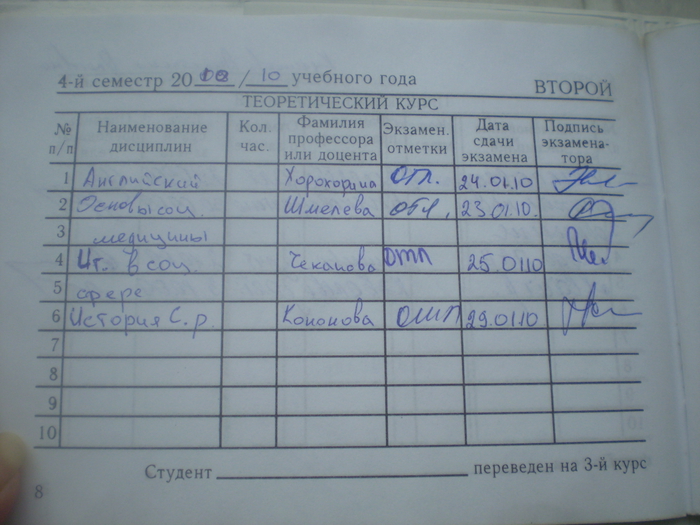 4-й семестр 20 09 / 10 учебного года ВТОРОЙ
ТЕОРЕТИЧЕСКИЙ КУРС
№ п/п Наименование дисциплин Кол. час. Фамилия профессора или доцента Экзамен. отметки Дата сдачи экзамена Подпись экзамена-тора
1 Английский Хорохордина отл. 24.01.10
2 Основы соц. Шмелева отл. 23.01.10.
3 медицины
4 Ит. в соц. Чеканова отл 25.0110
5 сфере
6 История С.р. Кононова отл 29.0110
7
8
9
10
Студент переведен на 3-й курс
8